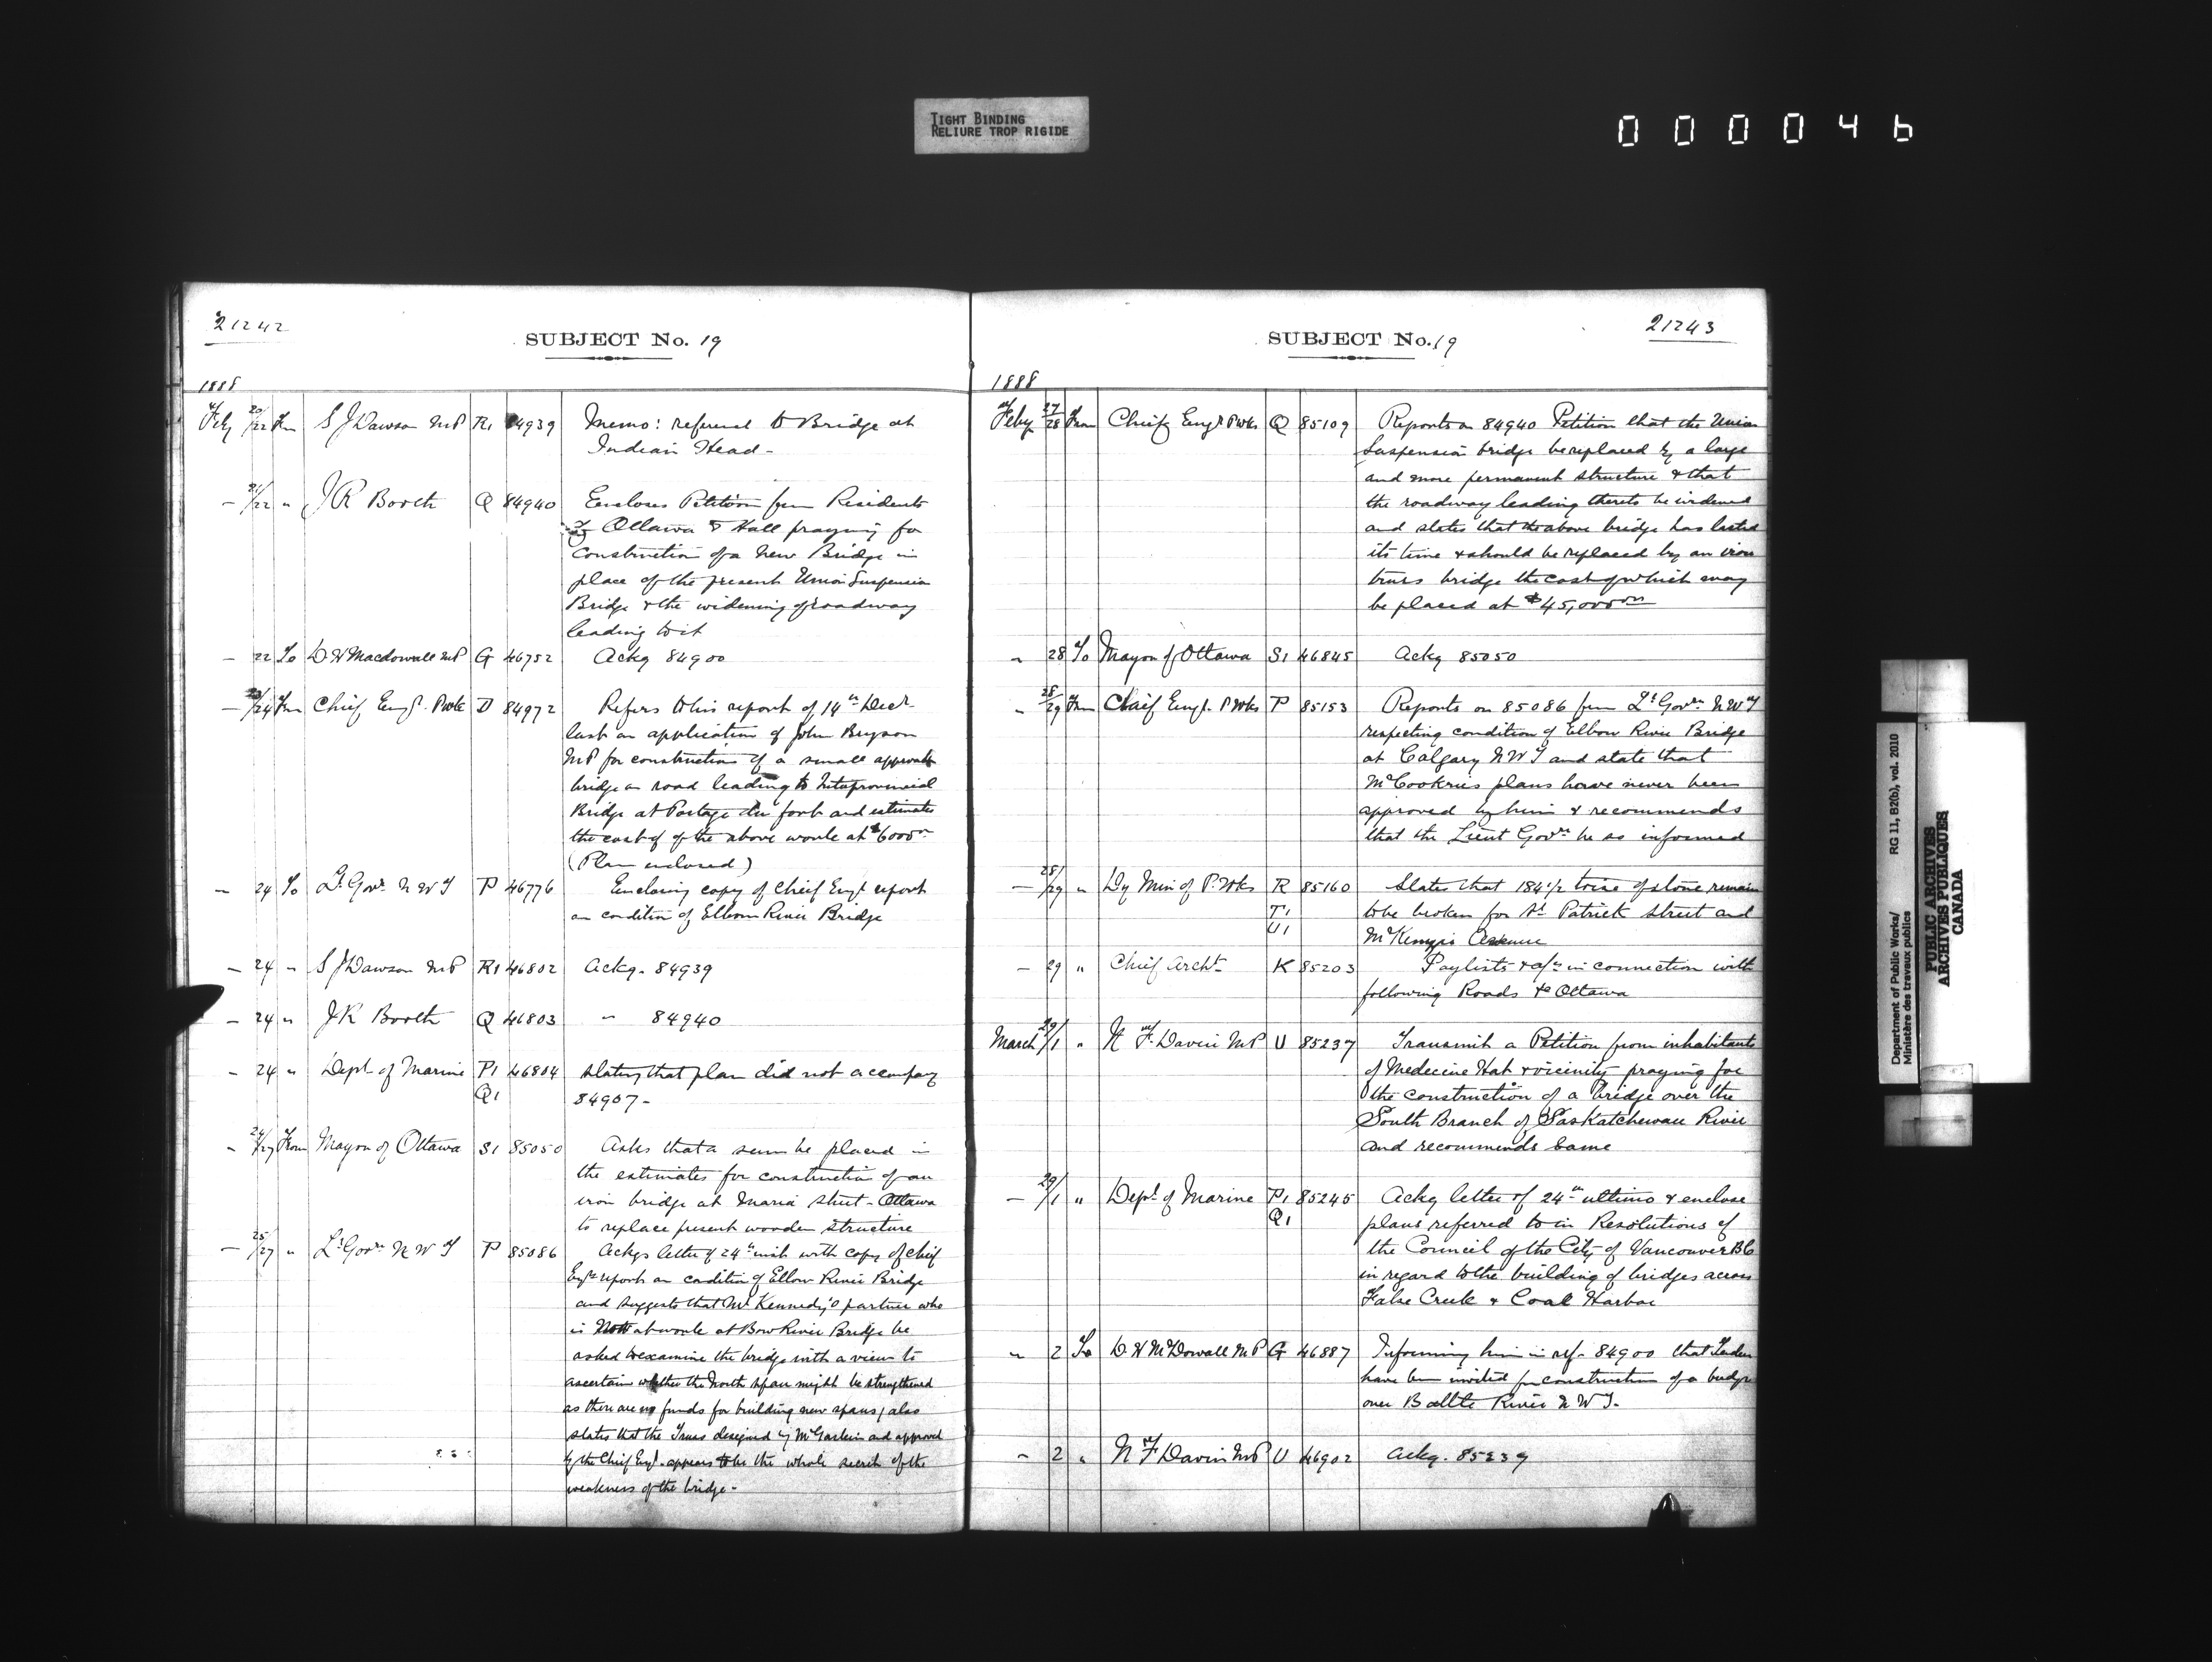 TIGHT BINDING
RELIURE TROP RIGIDE
000046
21242
SUBJECT No. 19
1888
Feby 20/22 From S J Dawson M P R1 84939 Memo: referred to Bridge at
Indian Head -
- 21/22 " J R Booth Q 84940 Encloses Petition from Residents
of Ottawa & Hull praying for
construction of a new Bridge in
place of the present Union Suspension
Bridge & the widening of roadway
leading to it
- 22 To D H Macdowall M P G 46752 Ackg 84900
- 23/24 From Chief Engr. P Wks D 84972 Refers to his report of 14th Decr
last on application of John Bryson
M P for construction of a small approach
bridge on road leading to Interprovincial
Bridge at Portage du fort and estimates
the cost of of the above work at $6000.00
(Plan enclosed)
- 24 To Lt Govr N W T P 46776 Enclosing copy of Chief Engr report
on condition of Elbow River Bridge
- 24 " S J Dawson M P R1 46802 Ackg. 84939
- 24 " J R Booth Q 46803 " 84940
- 24 " Dept of Marine P1 46804 stating that plan did not accompany
Q1 84907 -
- 24/27 From Mayor of Ottawa S1 85050 Asks that a sum be placed in
the estimates for construction of an
iron bridge at Maria street - Ottawa
to replace present wooden structure
- 25/27 " Lt Govr N W T P 85086 Ackgs letter of 24th inst with copy of Chief
Engrs report on condition of Elbow River Bridge
and suggests that Mr Kennedy's partner who
is now at work at Bow River Bridge be
asked to examine the bridge with a view to
ascertain whether the North span might be strengthened
as there are no funds for building new spans, also
states that the Truss designed by and approved
by the Chief Engr. appears to be the whole secret of the
weakness of the bridge -
SUBJECT No. 19
21243
1888
Feby 27/28 From Chief Engr P Wks Q 85109 Reports on 84940 Petition that the Union
Suspension bridge be replaced by a large
and more permanent structure & that
the roadway leading thereto be widened
and states that the above bridge has lasted
its time & should be replaced by an iron
truss bridge the cost of which may
be placed at $45,000.00
" 28 To Mayor of Ottawa S1 46845 Ackg 85050
" 28/29 From Chief Engr. P Wks P 85153 Reports on 85086 from Lt Govr N W T
respecting condition of Elbow River Bridge
at Calgary N W T and state that
plans have never been
approved by him & recommends
that the Lieut Govr be so informed
- 28/29 " Dy Min of P. Wks R 85160 States that 184 1/2 toise of stone remain
T1 to be broken for St Patrick street and
U1 McKenzie Avenue
- 29 " Chief Archt K 85203 Paylists & a/cs in connection with
following Roads &c Ottawa
March 29/1 " N F Davin M P U 85237 Transmit a Petition from inhabitants
of Medecine Hat & vicinity praying for
the construction of a bridge over the
South Branch of Saskatchewan River
and recommends same
- 29/1 " Dept of Marine P1 85245 Ackg letter of 24th ultimo & enclose
Q1 plans referred to in Resolutions of
the Council of the City of Vancouver B C
in regard to the building of bridges across
False Creek & Coal Harbor
" 2 To D H McDowall M P G 46887 Informing him in ref. 84900 that Tenders
have been invited for construction of a bridge
over Battle River N W T.
- 2 " N F Davin M P U 46902 Ackg. 85239
Department of Public Works/ RG 11, B2(b), vol. 2010
Ministère des travaux publics
PUBLIC ARCHIVES
ARCHIVES PUBLIQUES
CANADA